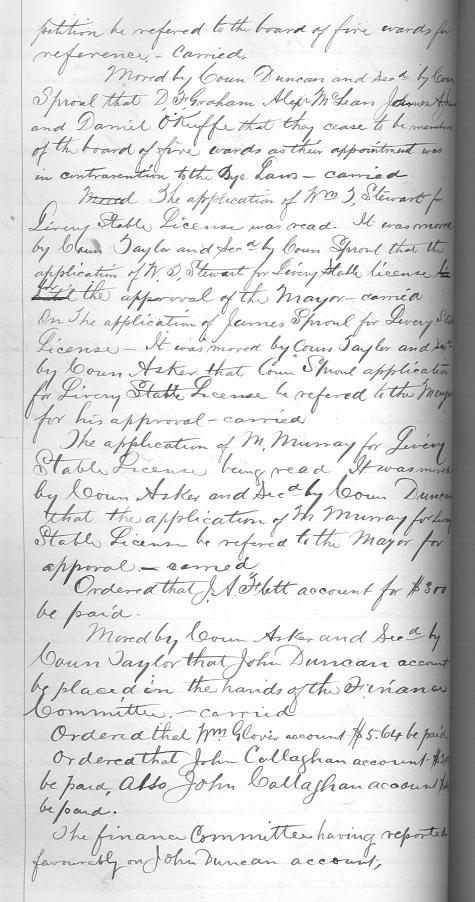 petition be refered to the board of fire wards for
reference. - carried.
Moved by Coun Duncan and Secd by Coun
Sproul that D. F. Graham Alexr McLean James
and Daniel O'Kuffe that they cease to be members
of the board of fire wards as their appointment was
in contravention to the Bye Laws - carried
Moved The application of Wm T. Stewart for
Livery Stable License was read. It was moved
by Coun Taylor and Secd by Coun Sproul that the
application of W. T. Stewart for Livery Stable license
the approval of the Mayor - carried
On The application of James Sproul for Livery
License - It was moved by Coun Taylor and Secd
by Coun Asker that Coun Sproul application
for Livery Stable License be refered to the Mayor
for his approval - carried
The application of M. Murray for Livery
Stable License being read It was moved
by Coun Asker and Secd by Coun Duncan
that the application of M Murray for Livery
Stable License be refered to the Mayor for
approval. - carried
Ordered that J. A. Flett account for $3.00
be paid.
Moved by Coun Asker and Secd by
Coun Taylor that John Duncan account
be placed in the hands of the Finance
Committee. - carried
Ordered that Wm Glover account $5.64 be paid
Ordered that John Callaghan account
be paid, Also John Callaghan account
be paid.
The finance Committee having reported
favourably on John Duncan account,